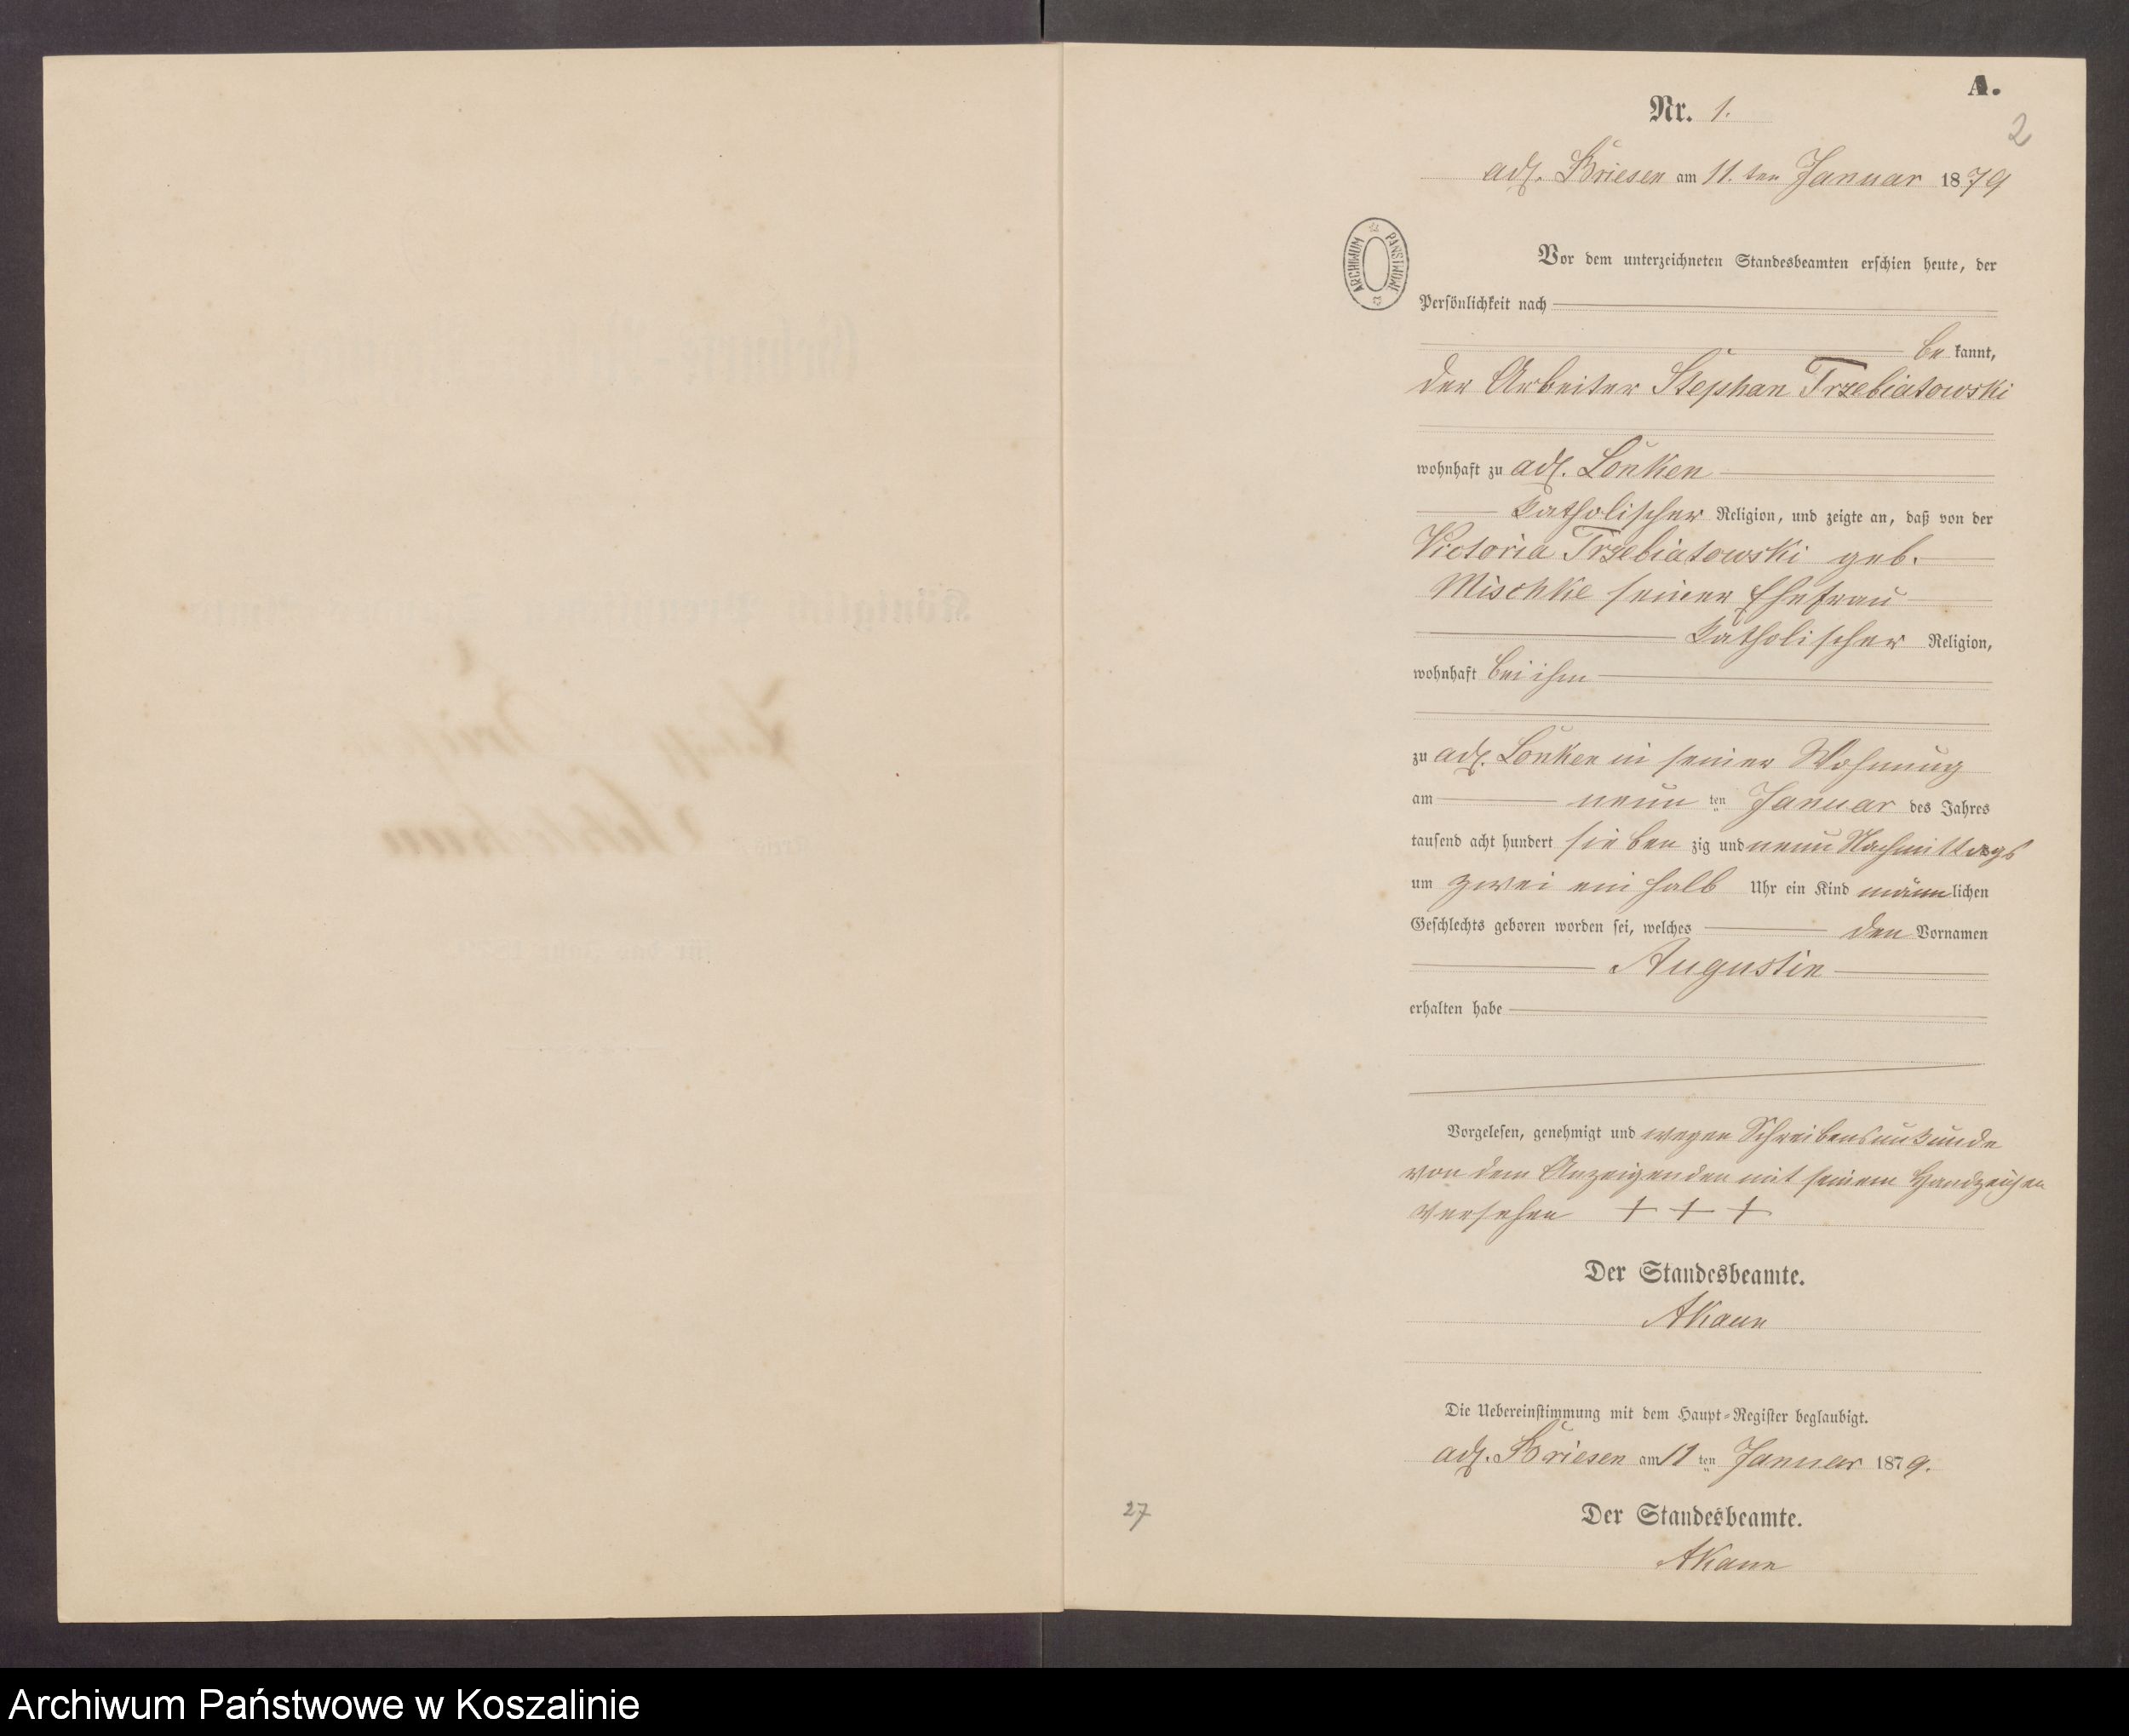 A.
Nr. 1.
2
adl. Briesen am 11. ten Januar 1879
ARCHIWUM PAŃSTWOWE
Vor dem unterzeichneten Standesbeamten erschien heute, der
Persönlichkeit nach
be kannt,
der Arbeiter Stephan Trzebiatowski
wohnhaft zu adl. Lonken
katholischer Religion, und zeigte an, daß von der
Victoria Trzebiatowski geb.
Mischke seiner Ehefrau
katholischer Religion,
wohnhaft bei ihm
zu adl. Lonken in seiner Wohnung
am neun ten Januar des Jahres
tausend acht hundert sieben zig und neun Nachmittags
um zwei ein halb Uhr ein Kind männlichen
Geschlechts geboren worden sei, welches den Vornamen
Augustin
erhalten habe
Vorgelesen, genehmigt und wegen Schreibensunkunde
von dem Anzeigenden mit seinem Handzeichen
versehen + + +
Der Standesbeamte.
Die Uebereinstimmung mit dem Haupt-Register beglaubigt.
adl. Briesen am 11 ten Januar 1879.
27
Der Standesbeamte.
Archiwum Państwowe w Koszalinie